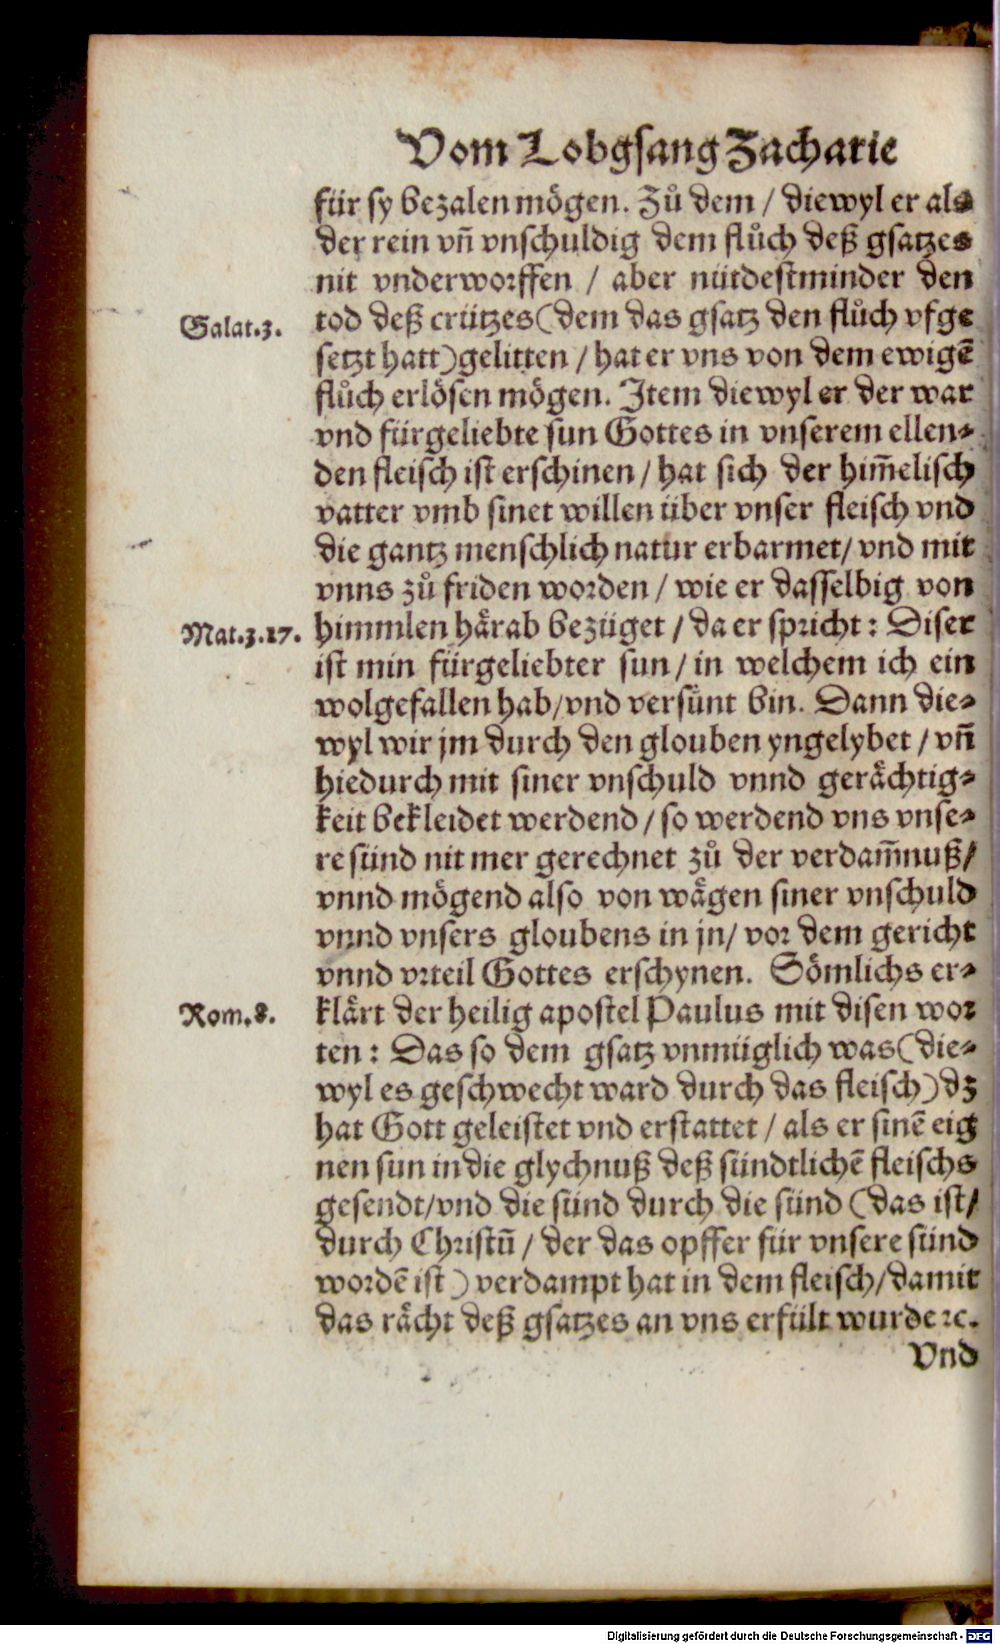 Vom Lobgsang Zacharie
für sy bezalen mögen. Zů dem / diewyl er als
der rein vñ vnschuldig dem flůch deß gsatzes
nit vnderworffen / aber nütdestminder den
Galat.3.
tod deß crützes (dem das gsatz den flůch vfge
setzt hatt) gelitten / hat er vns von dem ewigē
flůch erlösen mögen. Item diewyl er der war
vnd fürgeliebte sun Gottes in vnserem ellen⸗
den fleisch ist erschinen / hat sich der him̄elisch
vatter vmb sinet willen über vnser fleisch vnd
die gantz menschlich natur erbarmet / vnd mit
vnns zů friden worden / wie er dasselbig von
Mat.3.17.
himmlen härab bezüget / da er spricht : Diser
ist min fürgeliebter sun / in welchem ich ein
wolgefallen hab / vnd versünt bin. Dann die⸗
wyl wir jm durch den glouben yngelybet / vñ
hiedurch mit siner vnschuld vnnd gerächtig⸗
keit bekleidet werdend / so werdend vns vnse⸗
re sünd nit mer gerechnet zů der verdam̄nuß /
vnnd mögend also von wägen siner vnschuld
vnnd vnsers gloubens in jn / vor dem gericht
vnnd vrteil Gottes erschynen. Sömlichs er⸗
Rom.8.
klärt der heilig apostel Paulus mit disen wor
ten : Das so dem gsatz vnmüglich was (die⸗
wyl es geschwecht ward durch das fleisch) dz
hat Gott geleistet vnd erstattet / als er sinē eig
nen sun in die glychnuß deß sündtlichē fleischs
gesendt / vnd die sünd durch die sünd (das ist /
durch Christū / der das opffer für vnsere sünd
wordē ist) verdampt hat in dem fleisch / damit
das rächt deß gsatzes an vns erfült wurde ꝛc.
Vnd
Digitalisierung gefördert durch die Deutsche Forschungsgemeinschaft - DFG